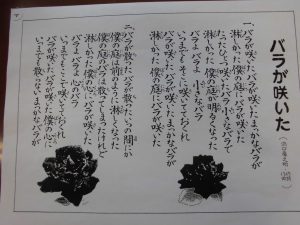 バラが咲いた
一、バラが咲いたバラが咲いたまっかなバラが
淋しかった僕の庭にバラが咲いた
たったひとつ咲いたバラ小さなバラで
淋しかった僕の庭が明るくなった
バラよバラよ小さなバラ
いつまでもそこに咲いておくれ
バラが咲いたバラが咲いたまっかなバラが
淋しかった僕の庭にバラが咲いた
二、バラが散ったバラが散ったいつの間にか
僕の庭は前のように淋しくなった
僕の庭のバラは散ってしまったけれど
淋しかった僕の心にバラが咲いた
バラよバラよ心のバラ
いつまでもここに咲いておくれ
バラが咲いたバラが咲いた僕の心に
いつまでも散らないまっかなバラが